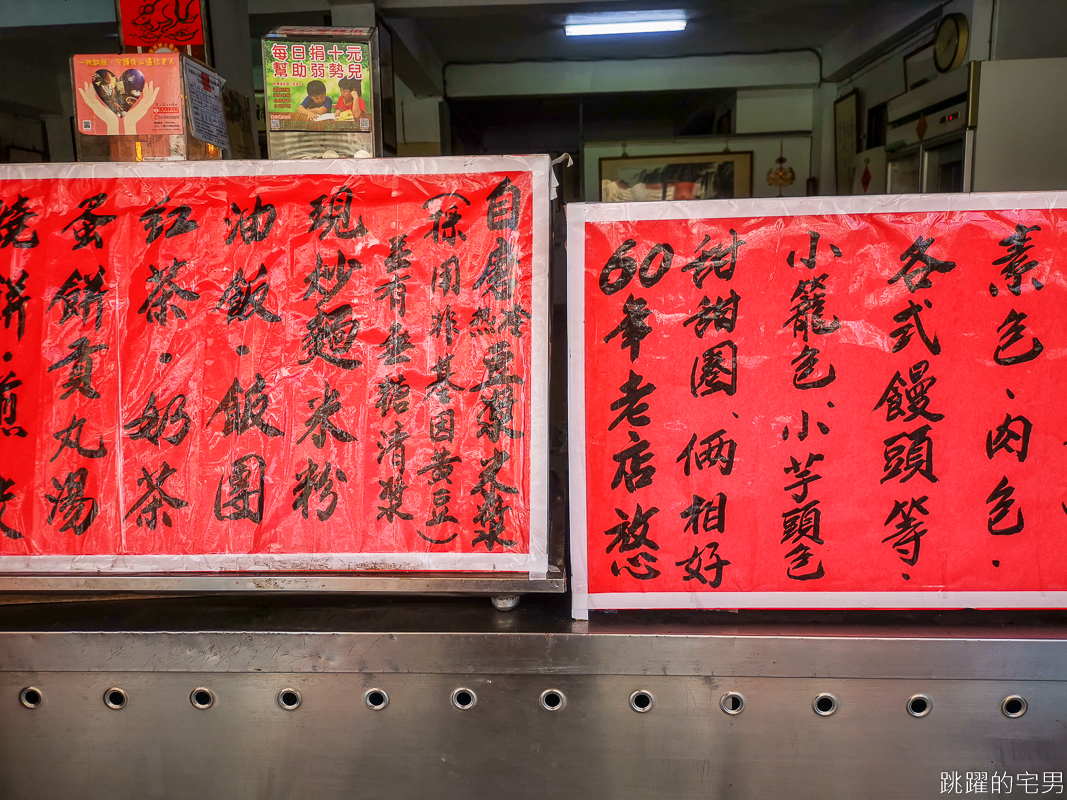 每日捐十元
幫助弱勢兒
素色、肉色.
各式饅頭等.
小籠色、小芋頭色
甜甜圈、倆相好
60年老店放心
白磨熱冷豆漿米漿
(採用非基因黃豆)
並有無糖清漿
現炒麵米粉
油飯.飯團
紅茶.奶茶
蛋餅貢丸湯
燒餅.煎
跳躍的宅男